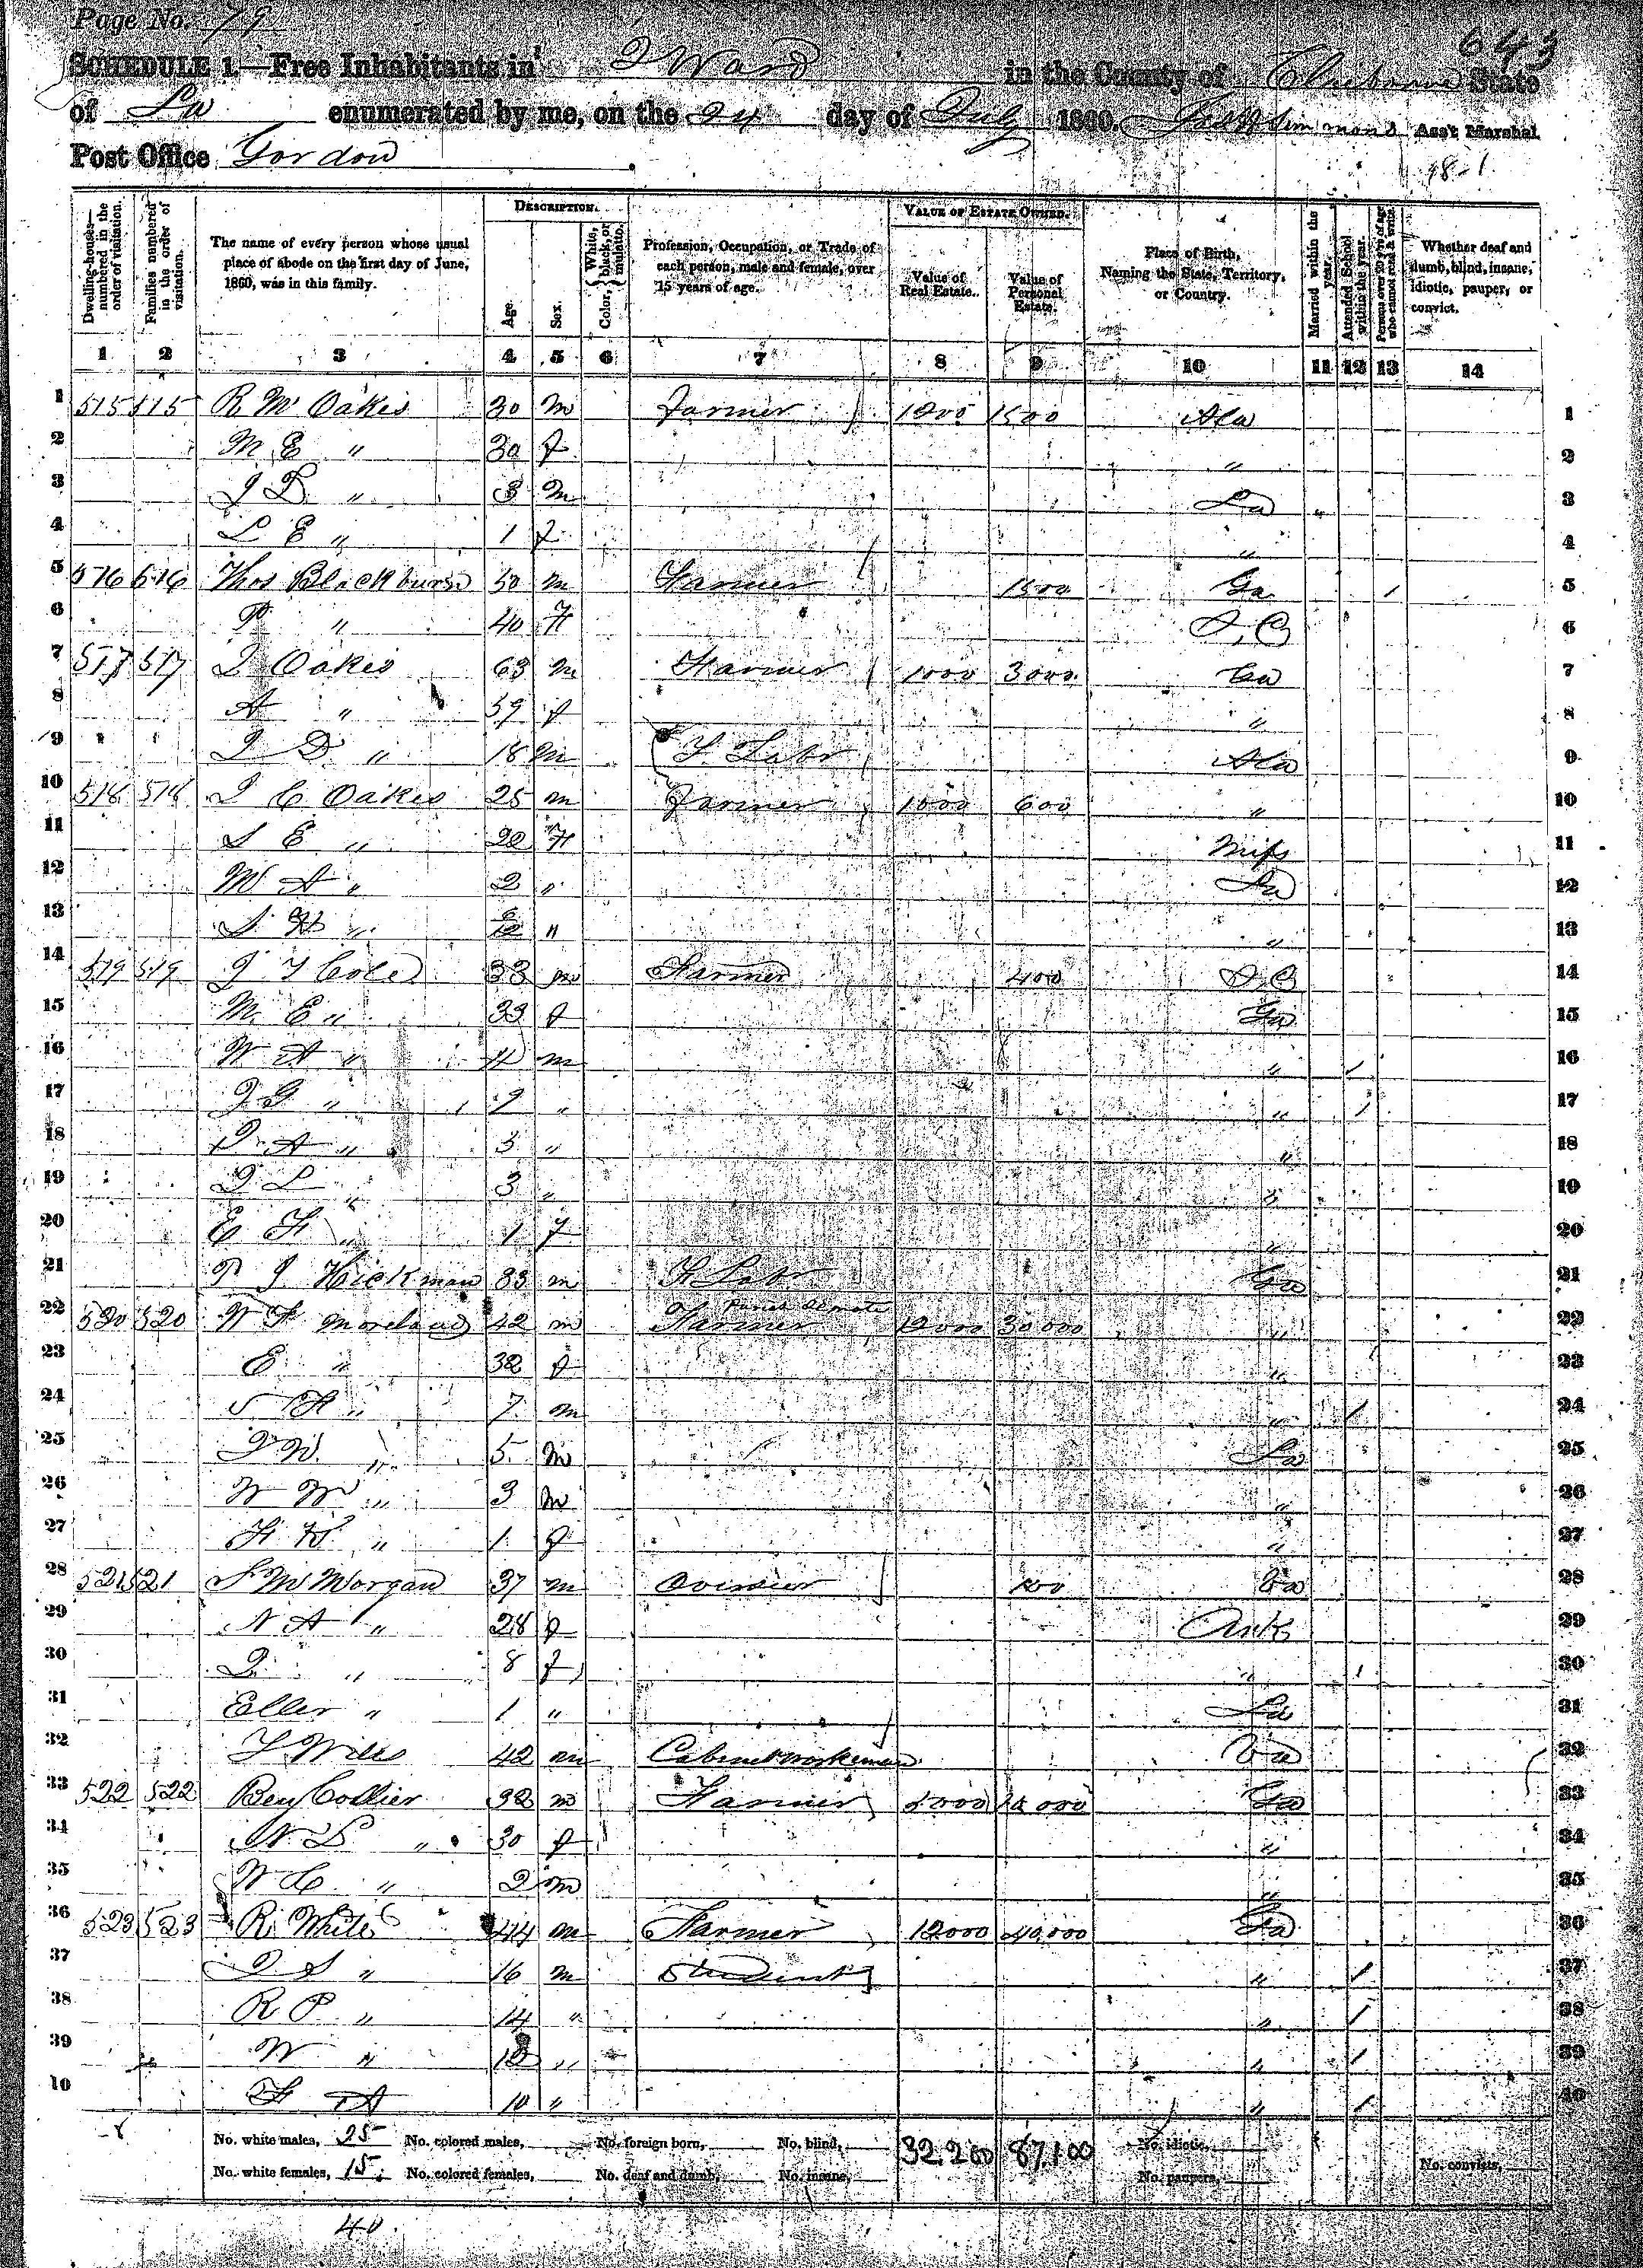 Page No. 79
643
SCHEDULE 1.—Free Inhabitants in 2 Ward in the County of Claiborne State
of La enumerated by me, on the 24 day of July 1860. Ass't Marshal.
Post Office Gordon
48-1
Dwelling-houses—numbered in the order of visitation. Families numbered in the order of visitation. The name of every person whose usual place of abode on the first day of June, 1860, was in this family. DESCRIPTION. Age. Sex. Color, White, black, or mulatto. Profession, Occupation, or Trade of each person, male and female, over 15 years of age. VALUE OF ESTATE OWNED. Value of Real Estate. Value of Personal Estate. Place of Birth, Naming the State, Territory, or Country. Married within the year. Attended School within the year. Persons over 20 y'rs of age who cannot read & write. Whether deaf and dumb, blind, insane, idiotic, pauper, or convict.
1 2 3 4 5 6 7 8 9 10 11 12 13 14
1 515 515 R M Oakes 30 m Farmer 1500 Ala 1
2 M E " 30 f " 2
3 J D " 3 m La 3
4 L E " 1 f " 4
5 516 516 Thos Blackburn 50 m Farmer 1500 Ga / 5
6 P " 40 F S,C 6
7 517 517 J Oakes 63 m Farmer 1000 3000 Ga 7
8 A " 59 f " 8
9 J D " 18 m F. Labr Ala 9
10 518 518 J C Oakes 25 m Farmer 1000 600 " 10
11 S E " 20 F Miss 11
12 M A " 2 " La 12
13 S H " 6/12 " " 13
14 519 519 J T Cole 33 m Farmer 400 S.C 14
15 M. E " 33 f Ga 15
16 W A " 11 m " / 16
17 J G " 9 " " / 17
18 A " " " 18
19 J L " 3 " " 19
20 E F " 1 f " 20
21 P J Hickman 33 m F Labr Ga 21
22 520 520 W F Moreland 42 m Farmer 12000 30000 " 22
23 E " 32 f " 23
24 S H " 7 m " / 24
25 J W " 5 m La 25
26 W W " 3 m " 26
27 F " 1 f " 27
28 521 521 S M Morgan 37 m Overseer Ga 28
29 N A " 28 f Ark 29
30 J " 8 f " / 30
31 Eller " 1 " La 31
32 T Wills 42 m Cabinet workeman Va 32
33 522 522 Benj Collier 32 m Farmer Ga 33
34 N L " 30 f " 34
35 W C " 2 m " 35
36 523 523 R. White 44 m Farmer 12000 40,000 Ga 36
37 J S " 16 m Student " / 37
38 R P " 14 " " / 38
39 W " 12 " " / 39
40 F A 10 " " / 40
No. white males, 25 No. colored males, No. foreign born, No. blind, 32.200 87.100 No. idiotic,
No. white females, 15 No. colored females, No. deaf and dumb, No. insane, No. paupers, No. convicts,
40